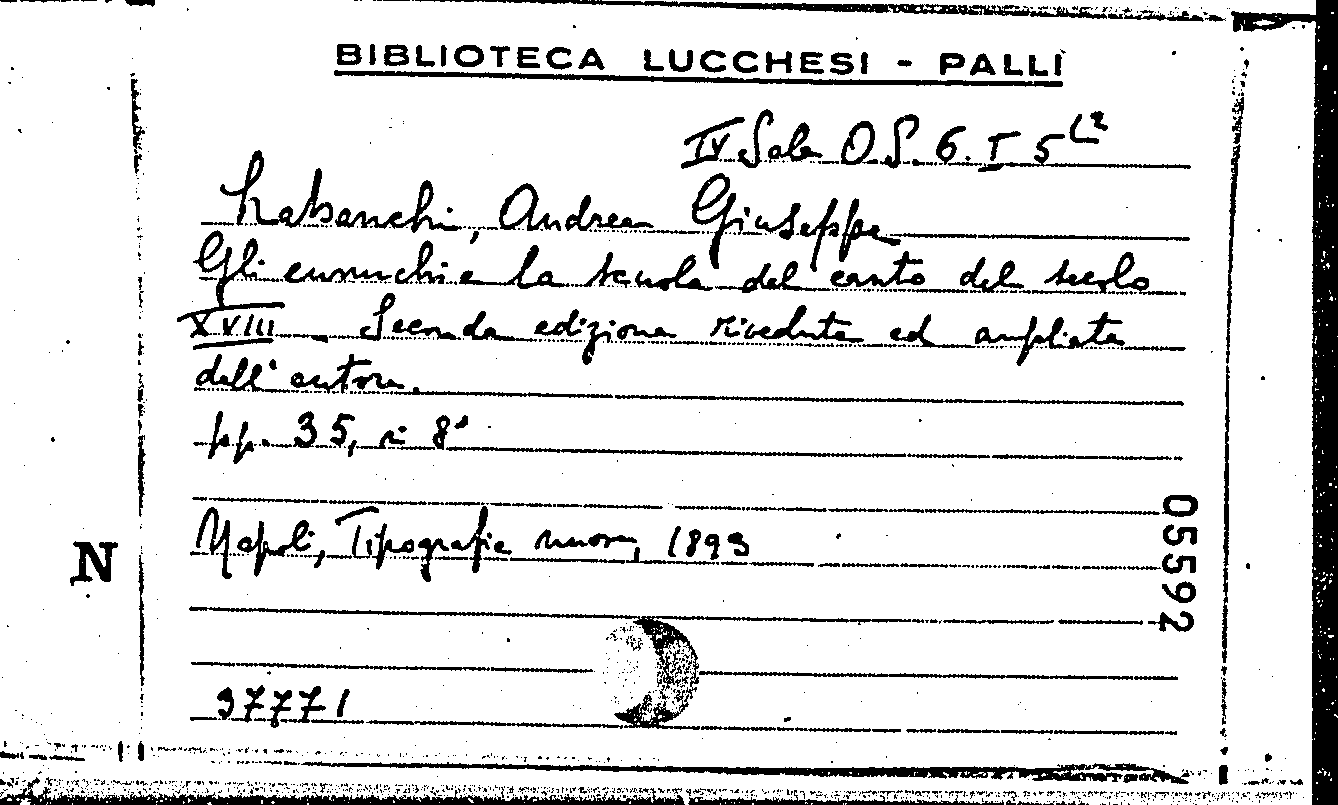 BIBLIOTECA LUCCHESI - PALLI
IV Sala O.S. 6. I 5
Labanchi, Andrea Giuseppe
Gli eunuchi e la scuola del canto del secolo
XVIII _ Seconda edizione riveduta ed ampliata
dall'autore.
pp. 35, in 8°
Napoli, Tipografia nuova, 1893
N
05592
37771